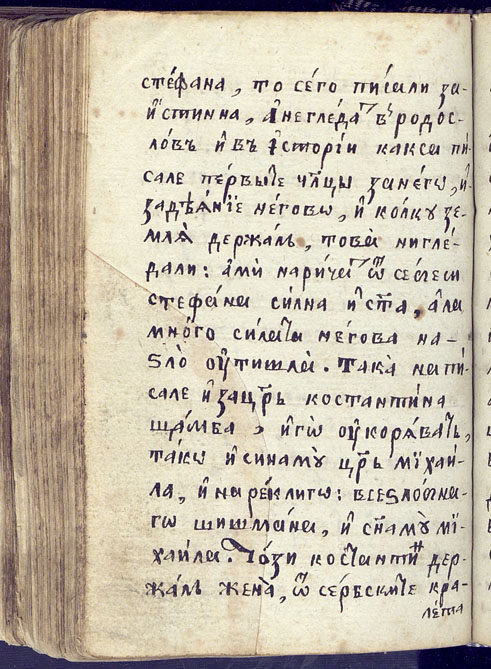 стефана, то сего писали за
истинна, а́неглѣда в родос-
ловъ и въ истории какса пи
сале первые члцы занего, и
задѣание негово, и колку зе-
мля держалъ, това нигле-
дали: ами нарича ѿ себеси
стефана силна и ста, ала
много силата негова на-
ѕло ѹтишла. Така напи-
сале и зацръ костантина
шамба, и го ѹкорявать,
тако и синаму црь михаи-
ла, и нарекли го: всеѕлобна-
го шишмана, и снаму ми-
хаила. Този костанти дер-
жалъ жена, ѿ сербските кра-
лета